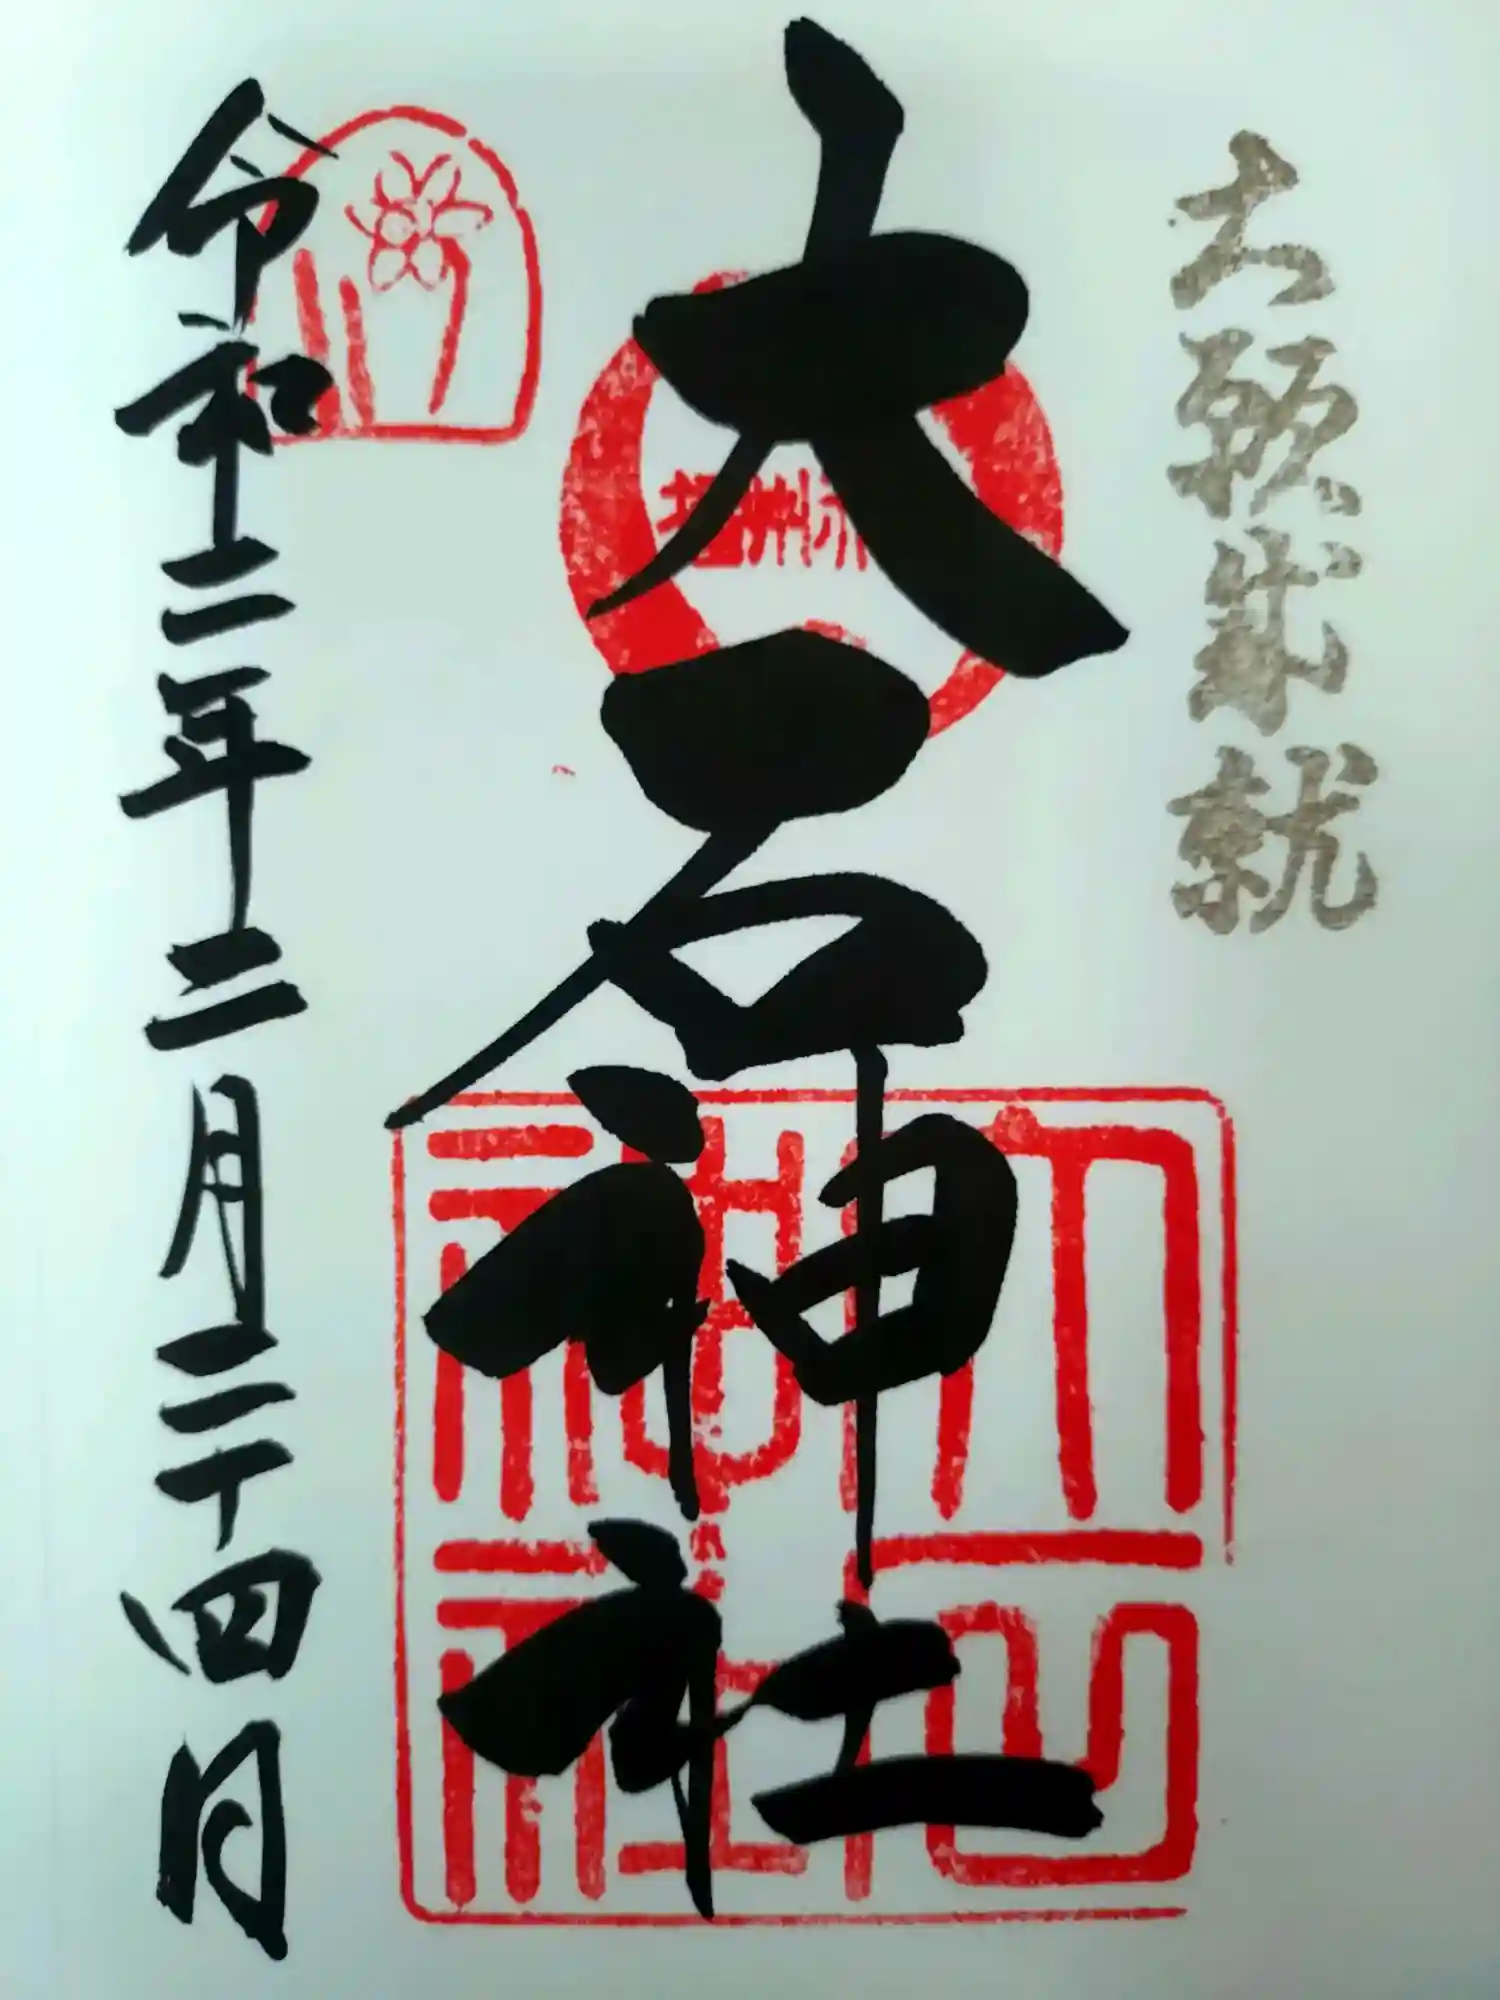 大願成就
大石神社
播州赤
大石神社
令和二年二月二十四日